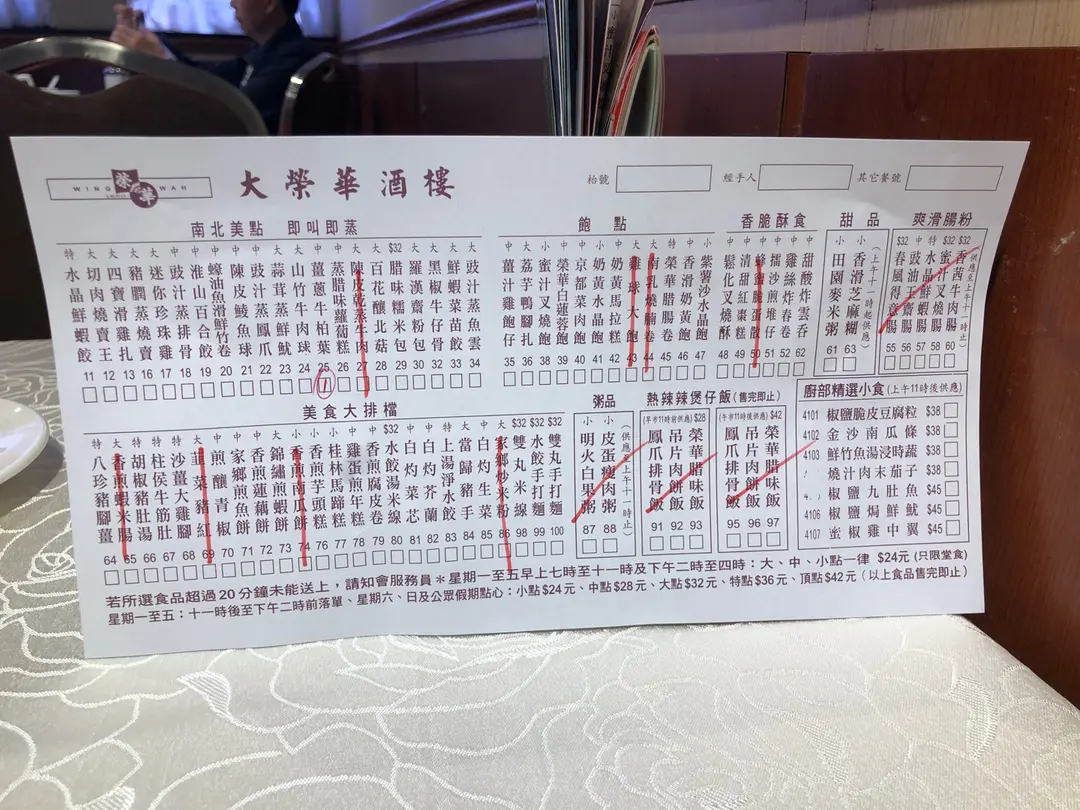 WING WAH
榮華
大榮華酒樓
枱號
經手人
其它餐號
南北美點 即叫即蒸
特 水晶鮮蝦餃 11
大 切肉燒賣王 12
大 四寶滑雞扎 13
大 豬膶燒賣 14
大 迷你珍珠雞 15
中 豉汁蒸排骨 16
中 淮山百合餃 18
大 蠔油魚滑鮮竹卷 20
大 陳皮鯪魚球 21
中 豉汁蒸鳳爪 22
大 蒜茸蒸鮮魷 23
大 山竹牛肉球 24
中 薑蔥牛柏葉 25
中 蒸臘味蘿蔔糕 26
大 陳皮乾蒸牛肉 27
大 百花釀北菇 28
$32 臘味糯米包 29
大 羅漢齋粉包 30
大 黑椒牛仔骨 31
大 鮮蝦菜苗餃 33
大 豉汁蒸魚雲 34
飽點
中 薑汁雞飽仔 35
大 荔芋鴨腳扎 36
小 蜜汁叉燒飽 38
中 榮華白蓮蓉飽 39
中 京都菜肉飽 40
小 奶黃水晶飽 41
小 奶黃馬拉糕 42
大 雞球大飽 43
大 南乳燒腩卷 44
特 榮華臘腸卷 45
中 香滑奶黃飽 46
小 紫薯沙水晶飽 47
香脆酥食
中 鬆化叉燒酥 48
中 清甜紅棗糕 49
小 蜂蜜脆蛋散 50
中 擂沙煎堆仔 51
中 雞絲炸春卷 52
中 甜酸炸雲吞 62
甜品
小 田園麥米粥 61
小 香滑芝麻糊 63
(上午十一時起供應)
爽滑腸粉
$32 春風得意腸 55
中 豉油王齋腸 56
特 水晶鮮蝦腸 57
$32 蜜汁叉燒腸 58
$32 香茜牛肉腸 60
(供應至上午十一時止)
美食大排檔
特 八珍豬腳薑 64
大 香煎蝦米腸 65
特 胡椒豬肚湯 66
特 柱侯牛筋肚 67
特 沙薑大雞腳 68
大 韮菜豬紅 69
中 煎釀青椒 70
中 家鄉煎魚餅 71
中 香煎蓮藕餅 72
中 錦繡煎蝦餅 73
小 香煎南瓜餅 74
小 香煎芋頭糕 76
小 桂林馬蹄糕 77
中 雞蛋煎年糕 78
中 香煎腐皮卷 79
$32 水餃湯米線 80
中 白灼菜芯 81
中 白灼芥蘭 82
特 上湯淨水餃 83
大 當歸豬手 84
中 白灼生菜 85
大 家鄉炒米粉 86
$32 雙丸米線 98
$32 水餃手打麵 99
$32 雙丸手打麵 100
粥品
小 明火白果粥 87
小 皮蛋瘦肉粥 88
(供應至上午十一時止)
熱辣辣煲仔飯(售完即止)
(早市11時前供應) $28
鳳爪排骨飯 91
吊片肉餅飯 92
榮華臘味飯 93
(午市11時後供應) $42
鳳爪排骨飯 95
吊片肉餅飯 96
榮華臘味飯 97
廚部精選小食(上午11時後供應)
4101 椒鹽脆皮豆腐粒 $38
4102 金沙南瓜條 $38
4103 鮮竹魚湯浸時蔬 $38
燒汁肉末茄子 $38
椒鹽九肚魚 $45
4106 椒鹽焗鮮魷 $45
4107 蜜椒雞中翼 $45
若所選食品超過20分鐘未能送上,請知會服務員*星期一至五早上七時至十一時及下午二時至四時:大、中、小點一律 $24元(只限堂食)
星期一至五:十一時後至下午二時前落單、星期六、日及公眾假期點心:小點$24元、中點$28元、大點$32元、特點$36元、頂點$42元(以上食品售完即止)